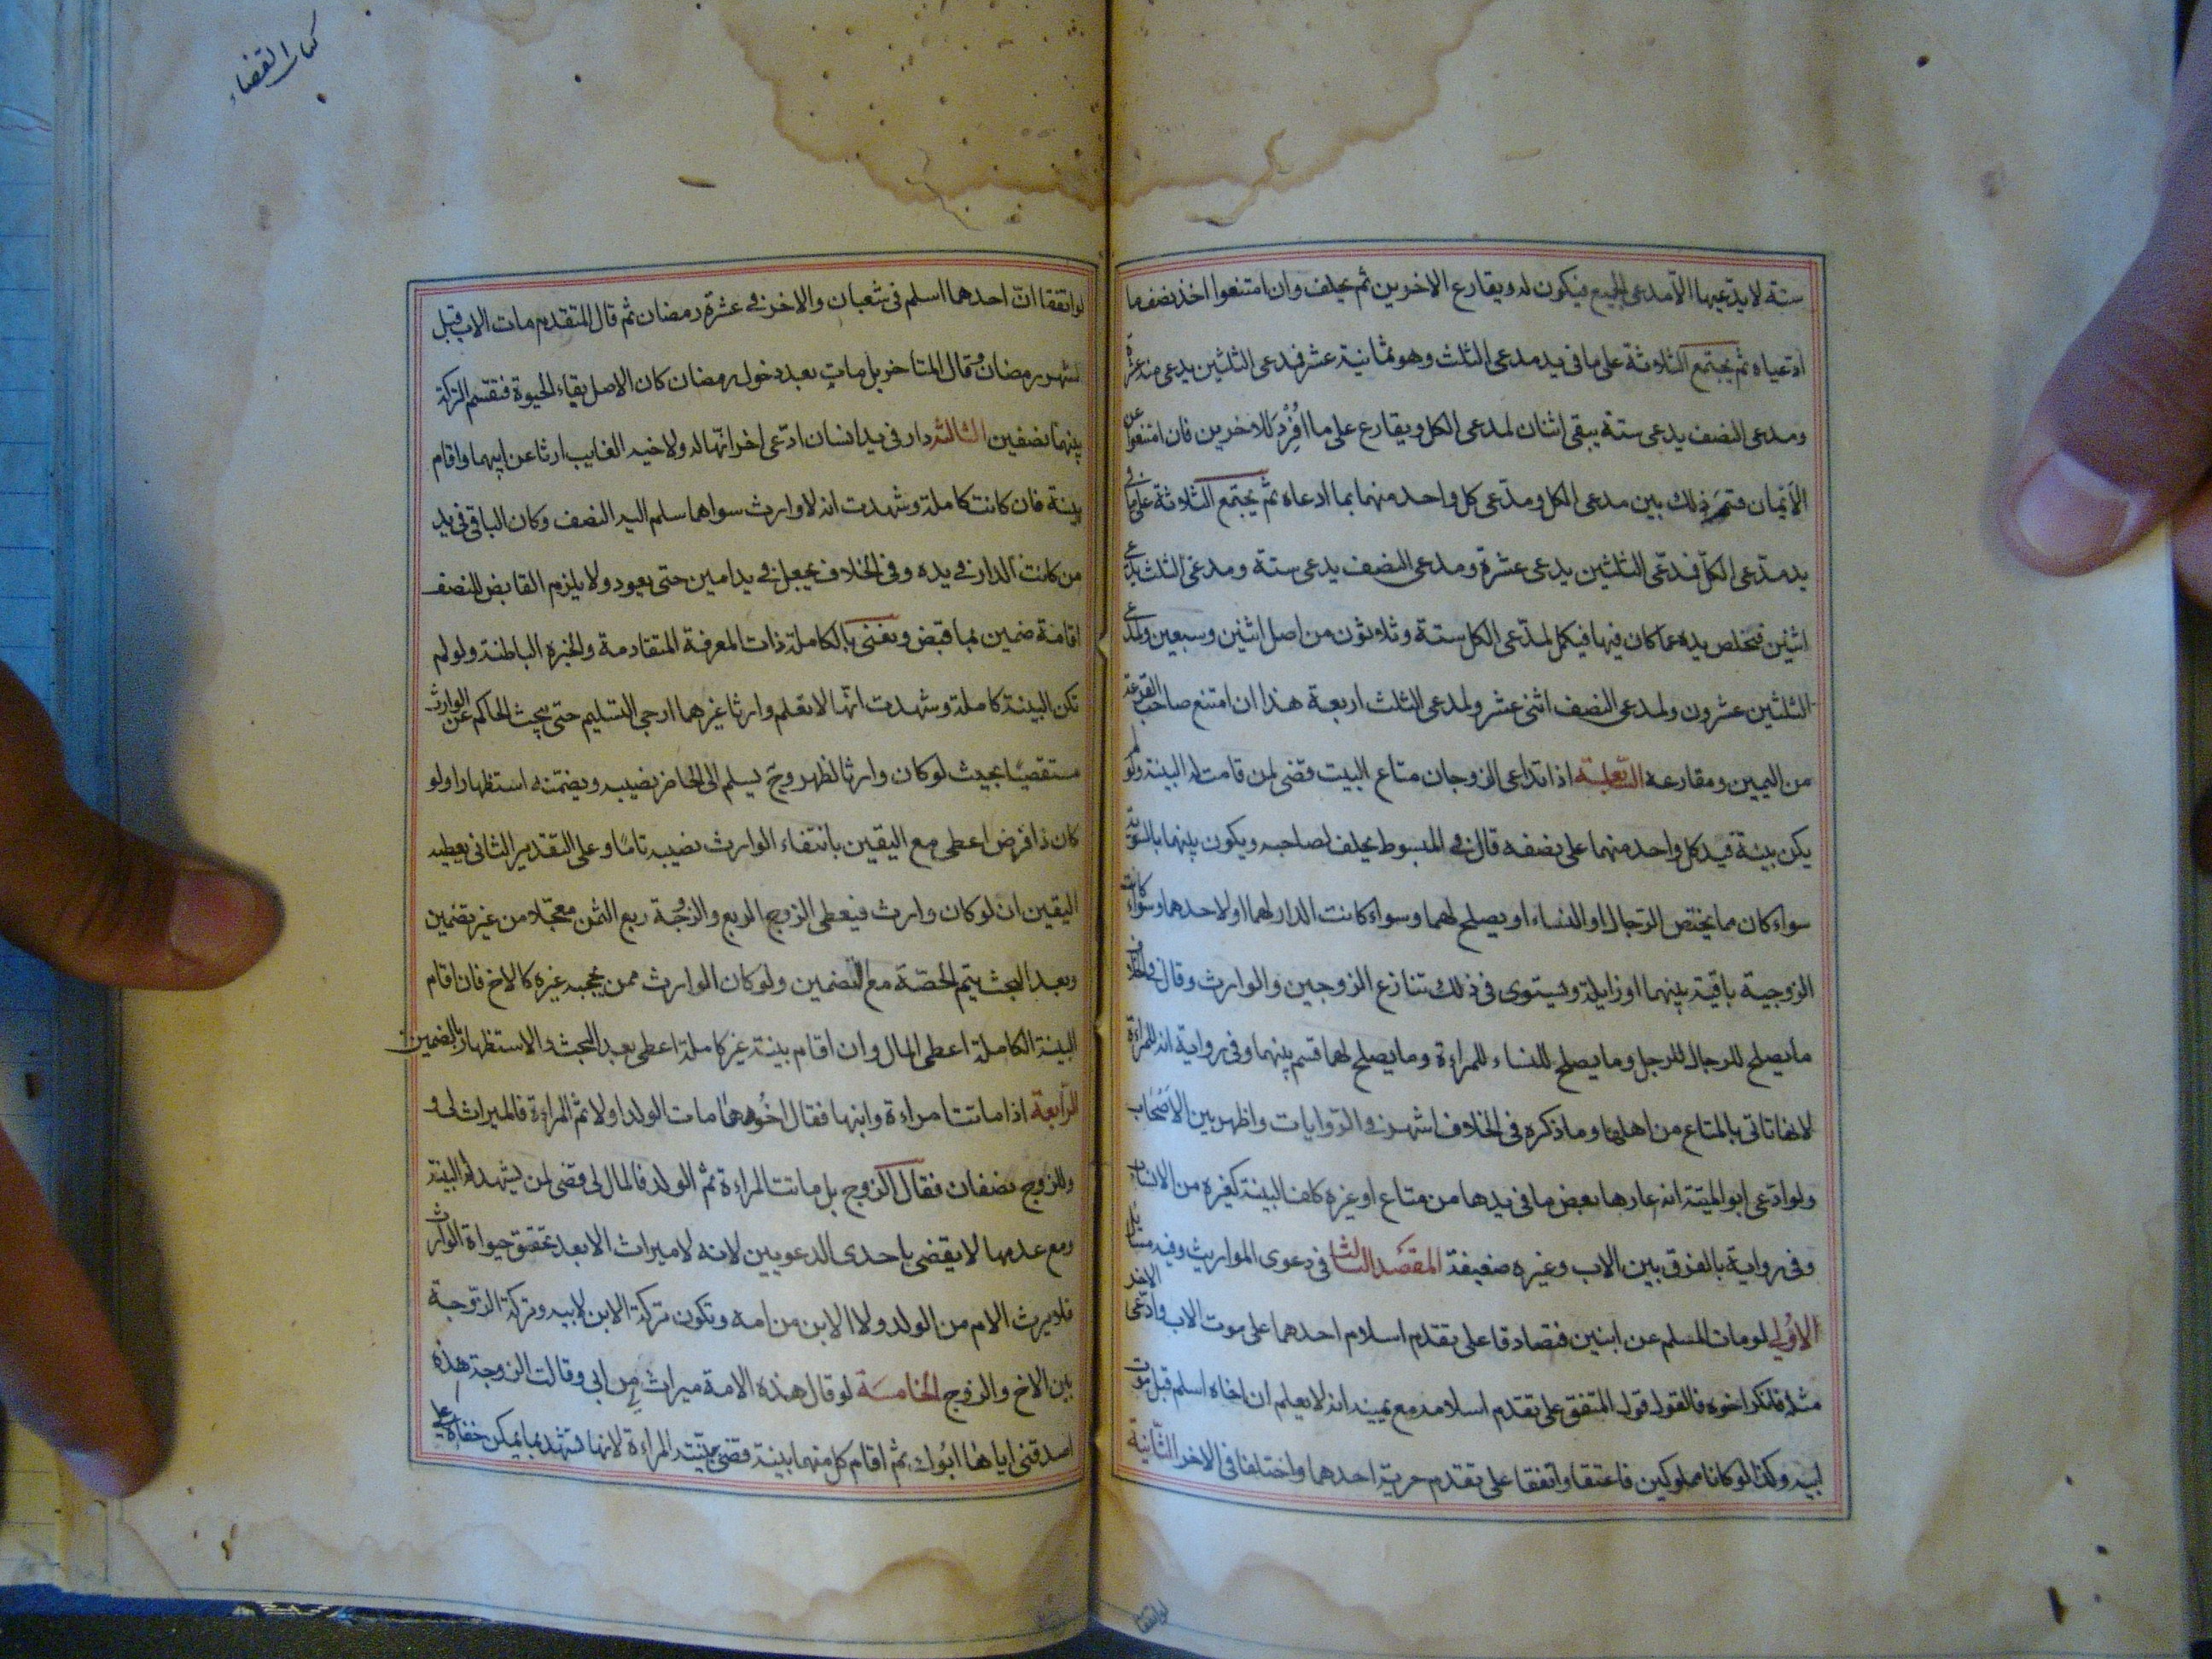 ستة لا يدعيها الا مدعى الجميع فيكون له ويقارع الاخرين ثم يحلف وان امتنعوا اخذ نصف ما
ادعياه ثم يجتمع الثلاثة على ما فى يد مدعى الثلث وهو ثمانية عشر فمدعى الثلثين يدعى منه عشرة
ومدعى النصف يدعى ستة يبقى اثنان لمدعى الكل ويقارع على ما اُفْرِدَ للاخرين فان امتنعوا عن
الأيمان قسم ذلك بين مدعى الكل ومدعى كل واحد منهما بما ادعاه ثم يجتمع الثلاثة على ما فى
يد مدّعى الكلّ فمدّعى الثلثين يدعى عشرة ومدعى النصف يدعى ستة ومدعى الثلث يدعى
اثنين فيخلص يده عما كان فيها فيكمل لمدّعى الكل ستة وثلاثون من اصل اثنين وسبعين ولمدعى
الثلثين عشرون ولمدعى النصف اثنى عشر ولمدعى الثلث اربعة هذا ان امتنع صاحب القرعة
من اليمين ومقارعه السّابعة اذا تداعى الزوجان متاع البيت قضى لمن قامت له البينة ولو لم
يكن بينة فيد كل واحد منهما على نصفه قال فى المبسوط يحلف لصاحبه ويكون بينهما بالسوية
سواء كان مما يختص الرجال او النساء او يصلح لهما وسواء كانت الدار لهما او لاحدهما وسواء كانت
الزوجية باقية بينهما او زايلة ويستوى فى ذلك تنازع الزوجين والوارث وقال فى الخلاف
ما يصلح للرجال للرجل وما يصلح للنساء للمراءة وما يصلح لهما قسم بينهما وفى رواية انه للمراءة
لانها تاتى بالمتاع من اهلها وما ذكره فى الخلاف اشهر فى الرّوايات واظهر بين الاصحاب
ولو ادّعى ابو الميتة انه عارها بعض ما فى يدها من متاع او غيره كلف البينة كغيره من الانساب
وفى رواية بالفرق بين الاب وغيره ضعيفة المقصد الثالث فى دعوى المواريث وفيه مسائل
الاولى لو مات المسلم عن ابنين فتصادقا على تقدم اسلام احدهما على موت الاب وادّعى الاخر
مثله فانكر اخوه فالقول قول المتفق على تقدم اسلامه مع يمينه انه لا يعلم ان اخاه اسلم قبل موت
ابيه وكذا لو كانا مملوكين فاعتقا واتفقا على تقدم حرية احدهما واختلفا فى الاخر الثّانية
لو اتفقا
كتاب القضاء
لو اتفقا انّ احدهما اسلم فى شعبان والاخر فى غرّة رمضان ثم قال المتقدم مات الاب قبل
شهر رمضان وقال المتأخر بل مات بعد دخول رمضان كان الاصل بقاء الحيوة فتقسم التركة
بينهما نصفين الثالثة دار فى يد انسان ادّعى اخر انّها له ولاخيه الغايب ارثا عن ابيهما واقام
بينة فان كانت كاملة وشهدت انه لا وارث سواهما سلم اليه النصف وكان الباقى فى يد
من كانت الدار فى يده وفى الخلاف يجعل فى يد امين حتى يعود ولا يلزم القابض للنصف
اقامة ضمين بما قبض ونعنى بالكاملة ذات المعرفة المتقادمة والخبرة الباطنة ولو لم
تكن البينة كاملة وشهدت انّها لا تعلم وارثا غيرهما ارجى التسليم حتى يبحث الحاكم عن الوارث
مستقصيًا بحيث لو كان وارثا لظهر وح يسلم الى الحاضر نصيبه ويضمنه استظهارا ولو
كان ذا فرض اعطى مع اليقين بانتفاء الوارث نصيبه تامًا وعلى التقدير الثانى يعطيه
اليقين ان لو كان وارث فيعطى الزوج الربع والزوجة ربع الثمن معجّلا من غير تضمين
وبعد البحث يتم الحصّة مع التضمين ولو كان الوارث ممن يحجبه غيره كالاخ فان اقام
البينة الكاملة اعطى المال وان اقام بينة غير كاملة اعطى بعد البحث والاستظهار بالضمين
الرّابعة اذا ماتت امراءة وابنها فقال اخوها مات الولد اولا ثم المراءة فالميراث لى و
للزوج نصفان فقال الزوج بل ماتت المراءة ثم الولد فالمال لى قضى لمن يشهد له البينة
ومع عدمها لا يقضى باحدى الدعويين لانه لا ميراث الا بعد تحقق حيواة الوارث
فلا يرث الام من الولد ولا الابن من امه وتكون تركة الابن لابيه وتركة الزوجة
بين الاخ والزوج الخامسة لو قال هذه الامة ميراث من ابى وقالت الزوجة هذه
اصدقنى اياها ابوك ثم اقام كل منهما بينة قضى ببينة المراءة لانها تشهد بما يمكن خفاؤه على